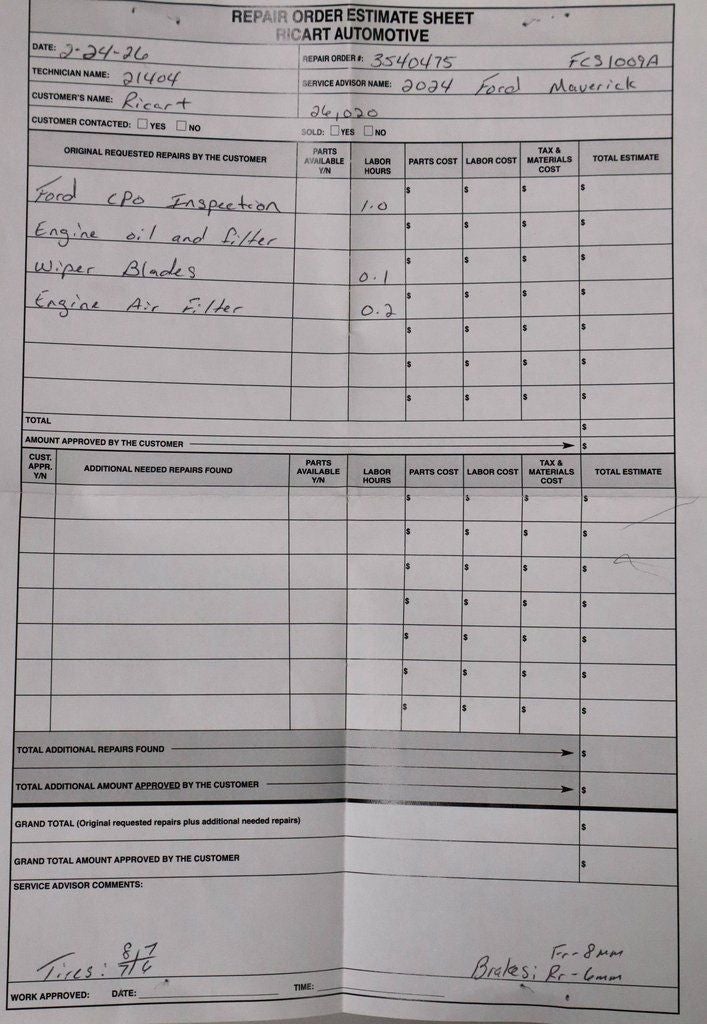 REPAIR ORDER ESTIMATE SHEET
RICART AUTOMOTIVE
DATE: 2-24-26
REPAIR ORDER #: 3540475 FCS1009A
TECHNICIAN NAME: 21404
SERVICE ADVISOR NAME: 2024 Ford Maverick
CUSTOMER'S NAME: Ricart
26,020
CUSTOMER CONTACTED: YES NO
SOLD: YES NO
ORIGINAL REQUESTED REPAIRS BY THE CUSTOMER PARTS AVAILABLE Y/N LABOR HOURS PARTS COST LABOR COST TAX & MATERIALS COST TOTAL ESTIMATE
Ford CPO Inspection 1.0 $ $ $ $
Engine oil and filter $ $ $ $
Wiper Blades 0.1 $ $ $ $
Engine Air Filter 0.2 $ $ $ $
$ $ $ $
$ $ $ $
$ $ $ $
TOTAL $
AMOUNT APPROVED BY THE CUSTOMER $
CUST. APPR. Y/N ADDITIONAL NEEDED REPAIRS FOUND PARTS AVAILABLE Y/N LABOR HOURS PARTS COST LABOR COST TAX & MATERIALS COST TOTAL ESTIMATE
$ $ $ $
$ $ $ $
$ $ $ $
$ $ $ $
$ $ $ $
$ $ $ $
$ $ $ $
TOTAL ADDITIONAL REPAIRS FOUND $
TOTAL ADDITIONAL AMOUNT APPROVED BY THE CUSTOMER $
GRAND TOTAL (Original requested repairs plus additional needed repairs) $
GRAND TOTAL AMOUNT APPROVED BY THE CUSTOMER $
SERVICE ADVISOR COMMENTS:
Tires: 8 7
7 6
Brakes: Fr-8mm
Rr-6mm
WORK APPROVED: DATE: TIME: